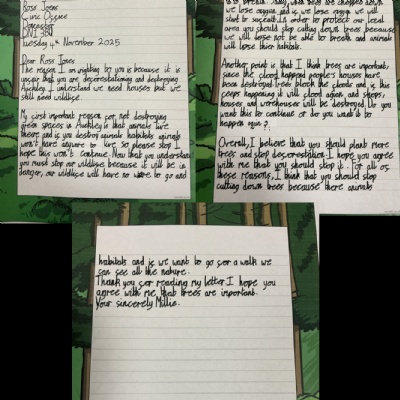 Ross Jones
Civic Office
Doncaster
DN1 3BU
Tuesday 4th November 2025
Dear Ross Jones
The reason I am writing to you is because it is
unfair that you are decorestationing and destroying
Auckley. I understand we need houses but we
still need wildlife.
My first important reason for not destroying
green spaces in Auckley is that animals live
there and if you destroy animals habitats animals
won't have anywhere to live so please stop I
hope this won't continue. Now that you understand
you must stop our wildlise because it will be in
danger, our wildlise will have no where to go and
is to breath. Also, trees are chopped down
we lose oxygen and if we lose oxygen we will
start to suffocate. In order to protect our local
area you should stop cutting down trees because
we will lose not be able to breath and animals
will lose thier habitats.
Another point is that I think trees are important,
since the flood happend people's houses have
been destroyed trees block the floods and is this
keeps happening it will flood again and shops,
houses and warehouses will be destroyed. Do you
want this to continue or do you want it to
happen again?
Overall, I believe that you should plant more
trees and stop decorestation. I hope you agree
with me that you should stop it. For all of
these reasons, I think that you should stop
cutting down trees because there animals
habitals and if we want to go for a walk we
can see all the nature.
Thank you for reading my letter. I hope you
agree with me that trees are inportant.
Your sincerely Millie.